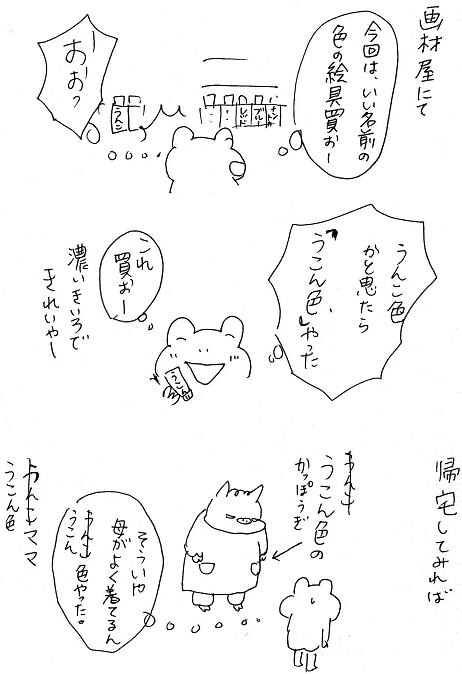 画材屋にて
今回は、いい名前の
色の絵具買お〜
おおっ
うんこ色
かと思たら
「うこん色」やった
これ
買お〜
濃いきいろで
きれいや〜
うこん色
帰宅してみれば
うんこ
うこん色の
かっぽうぎ
そういや
母がよく着てるん
うんこ色やった。
うこん
うんこママ
うこん色